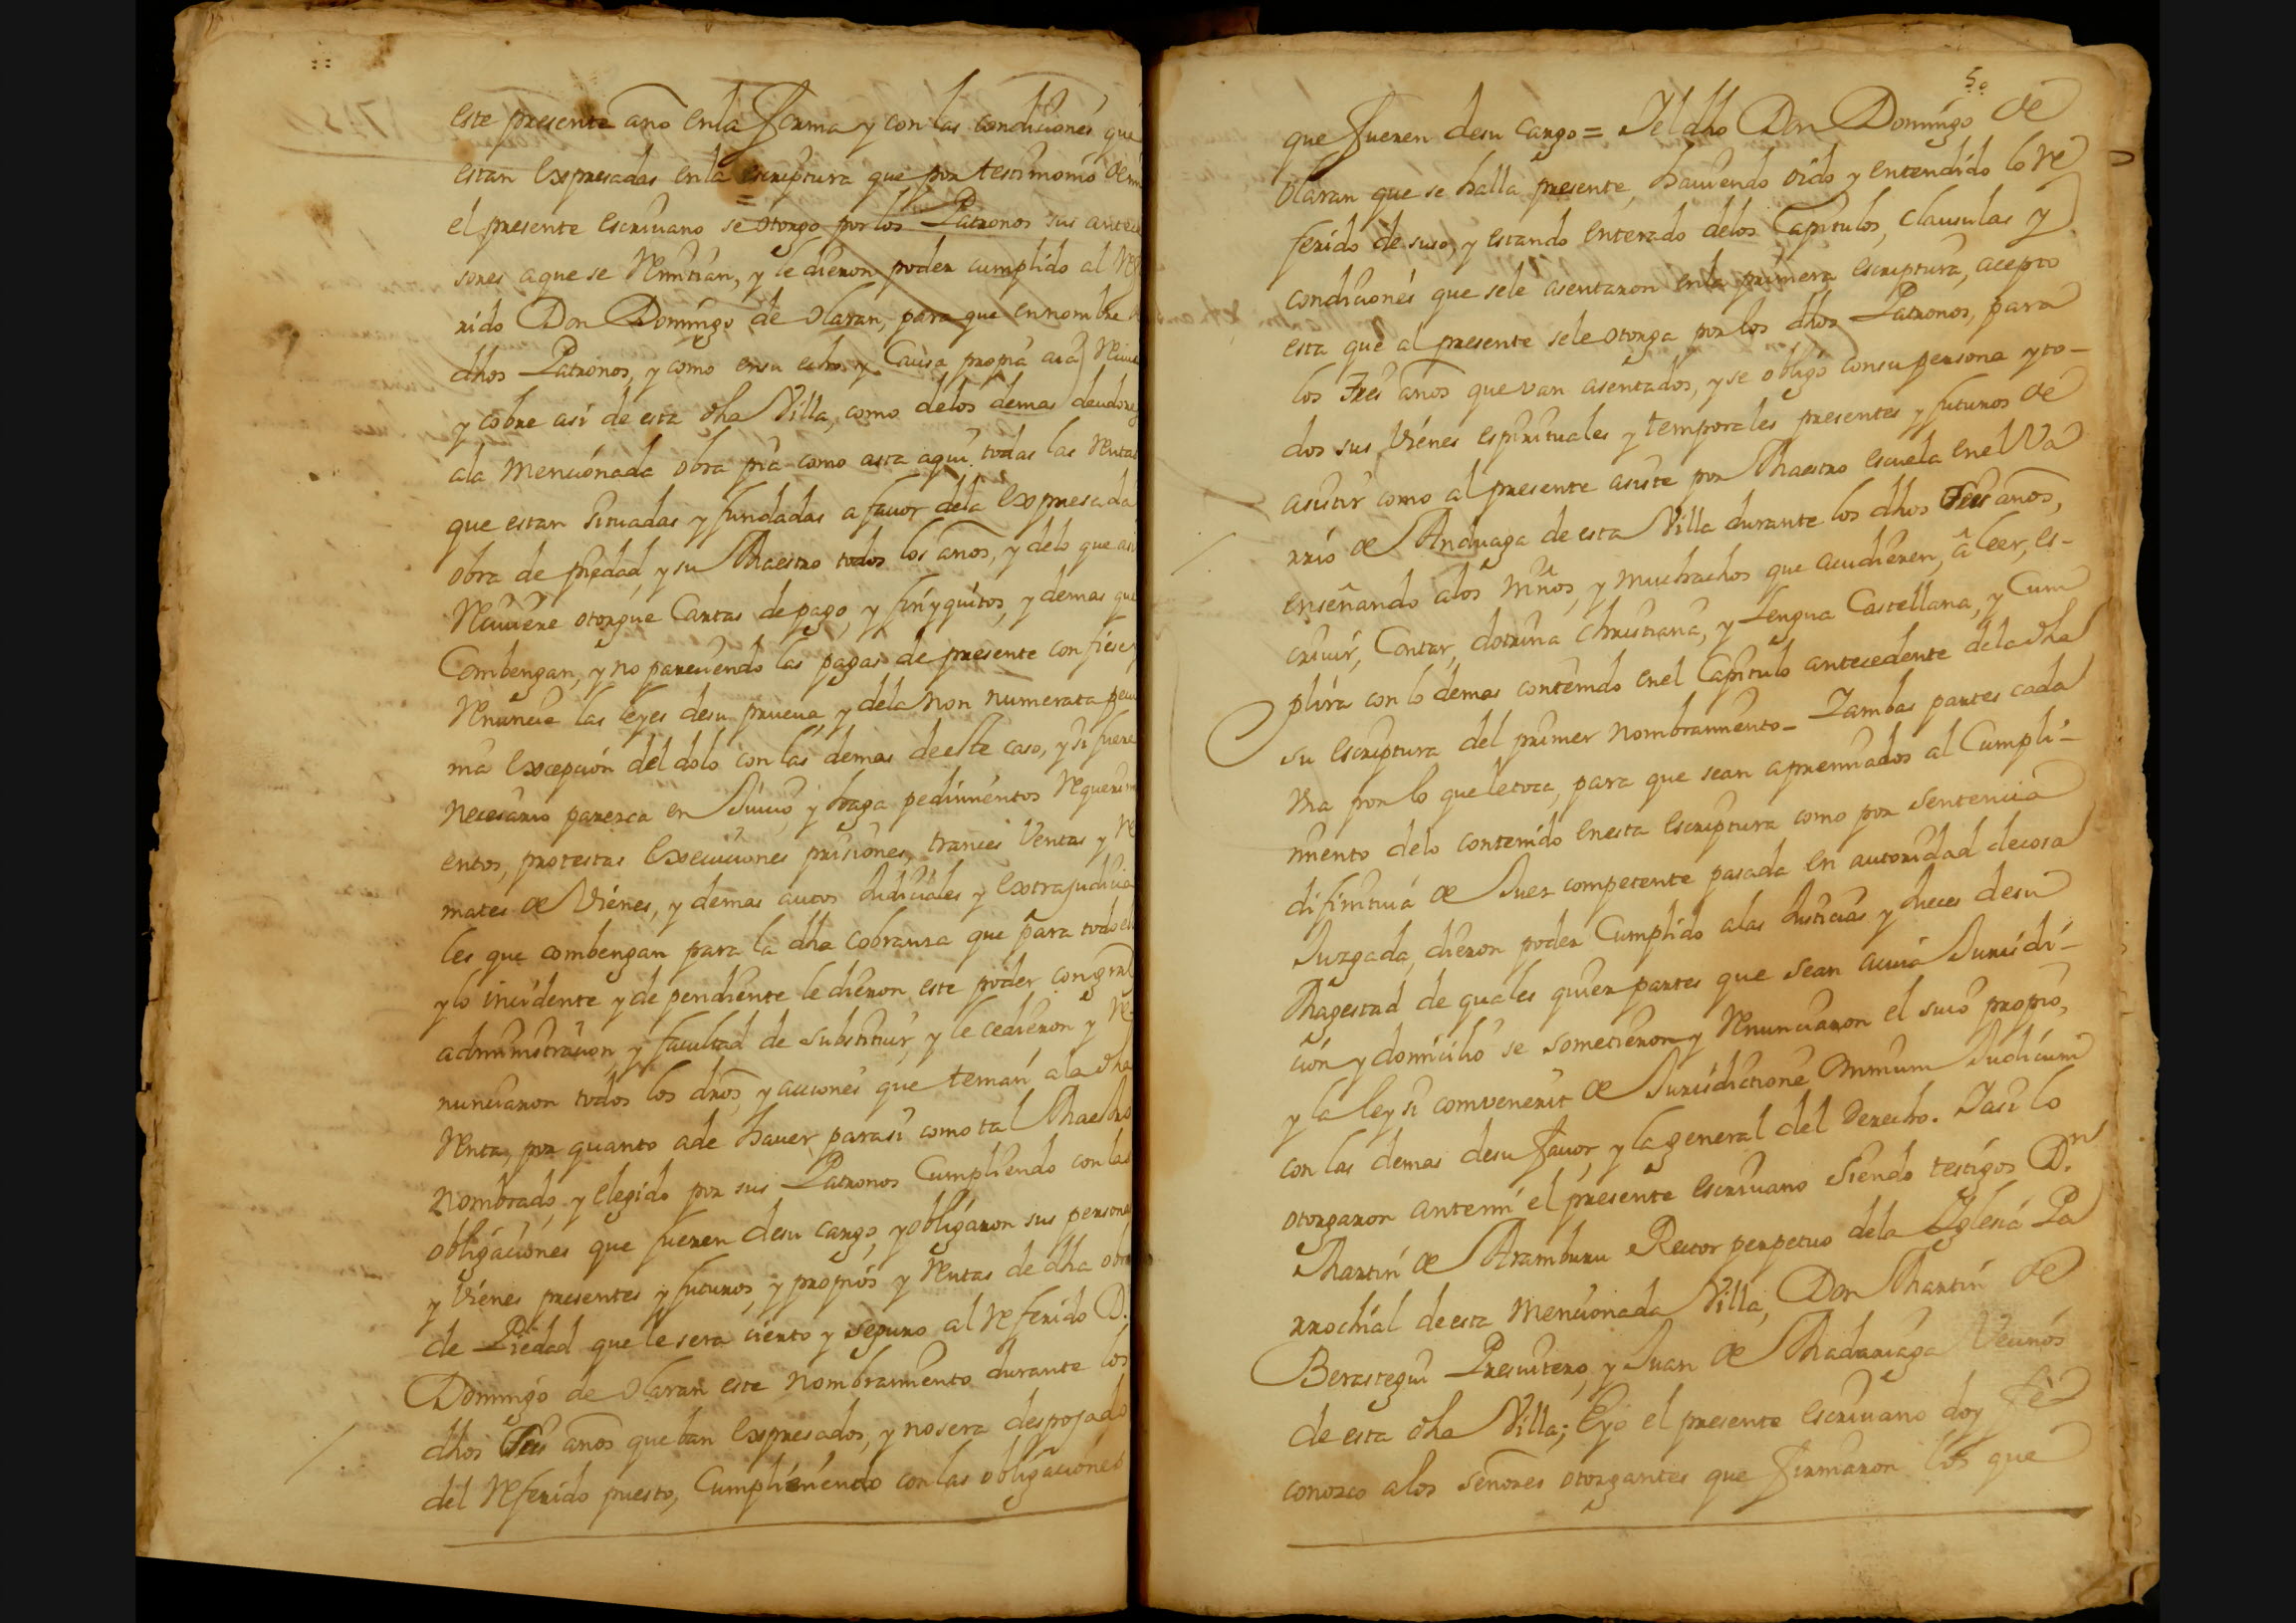 este presente año enla forma y con las condiciones que
estan expresadas enla escriptura que por testimonio de mi
el presente escriuano se otorgo por los Patronos sus antece
sores aque se Remitian, y le dieron poder cumplido al Refe
rido Don Domingo de Olaran, para que en nombre de
dhos Patronos, y como ensu echo y Causa propia aia Reciua
y cobre asi de esta dha Villa, como delos demas deudores
ala mencionada obra pia como asta aqui todas las Rentas
que estan situadas y fundadas a fauor dela expresada
obra de piedad, y su Maestro todos los años, y delo que asi
Reciuiere otorgue Cartas de pago, y finyquitos, y demas que
Combengan, y no pareciendo las pagas de presente confiese y
Renuncie las leyes desu prueua, y dela non numerata pecu
nia excepcion del dolo con las demas deeste caso, y si fuere
necesario paresca en Juicio y haga pedimientos Requerimi
entos, protestas execuciones prisiones, trances Ventas y Re
mates de Vienes, y demas autos Judiciales y extrajudicia
les que combengan para la dha cobransa que para todo ello
ylo incidente y dependiente le dieron este poder con gral
administracion, y facultad de substituir, y le cedieron y Re
nunciaron todos los dros, y acciones que tenian ala dha
Renta, por quanto ade hauer parasi como tal Maestro
nombrado, y elegido por sus Patronos Cumpliendo con las
obligaciones que fueren desu cargo, y obligaron sus personas
y Vienes presentes y futuros, y propios y Rentas de dha obra
de Piedad que le sera cierto y seguro al Referido D.
Domingo de Olaran este nombramiento durante los
dhos Tres años que ban expresados, y no sera despojado
del Referido puesto, Cumpliendo con las obligaciones
50
que fueren desu cargo = Yel dho Don Domingo de
Olaran que se halla presente, hauiendo oido y entendido lo Re
ferido de suso, y estando enterado delos Capitulos, clausulas y
condiciones que sele asentaron enla primera escriptura, acepto
esta que al presente sele otorga por los dhos Patronos, para
los Tres años que van asentados, y se obligo consu persona y to-
dos sus Vienes espirituales y temporales presentes y futuros de
asistir como al presente asiste por Maestro escuela enel Va
rrio de Anduaga de esta Villa durante los dhos Tres años,
enseñando alos niños, y muchachos que acudieren, â leer, es-
criuir, Contar, dotrina christiana, y Lengua Castellana, y Cum
plira con lo demas contenido enel Capitulo antecedente dela dha
su escriptura del primer nombramiento- Yambas partes cada
vna por lo que le toca, para que sean apremiados al Cumpli-
miento delo contenido enesta escriptura como por sentencia
difinitiua de Juez competente pasada en autoridad decosa
Juzgada, dieron poder Cumplido alas Justicias y Jueces desu
Magestad de quales quier partes que sean acuia Jurisdi-
cion y domicilio se sometieron y Renunciaron el suio propio,
y la ley si combenerit de Jurisdictione Omnium Judicum
con las demas desu fauor, y la general del Derecho. Yasi lo
otorgaron antemi el presente escriuano siendo testigos D.n
Martin de Aramburu Rector perpetuo dela Yglesia Pa
rrochial deesta mencionada Villa, Don Martin de
Berastegui Presuitero, y Juan de Madariaga Vecinos
de esta dha Villa; Eyo el presente escriuano doy fè
conozco alos señores otorgantes que firmaron los que